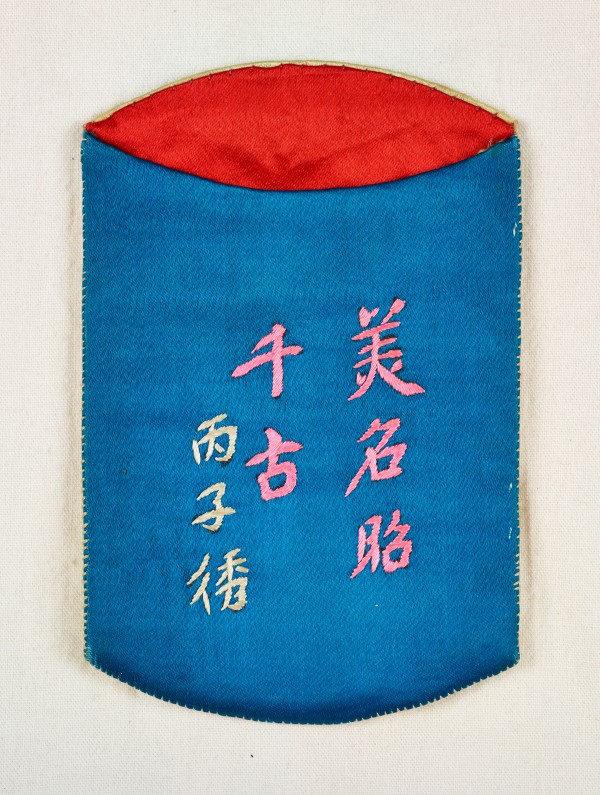 美名昭
千古
丙子绣